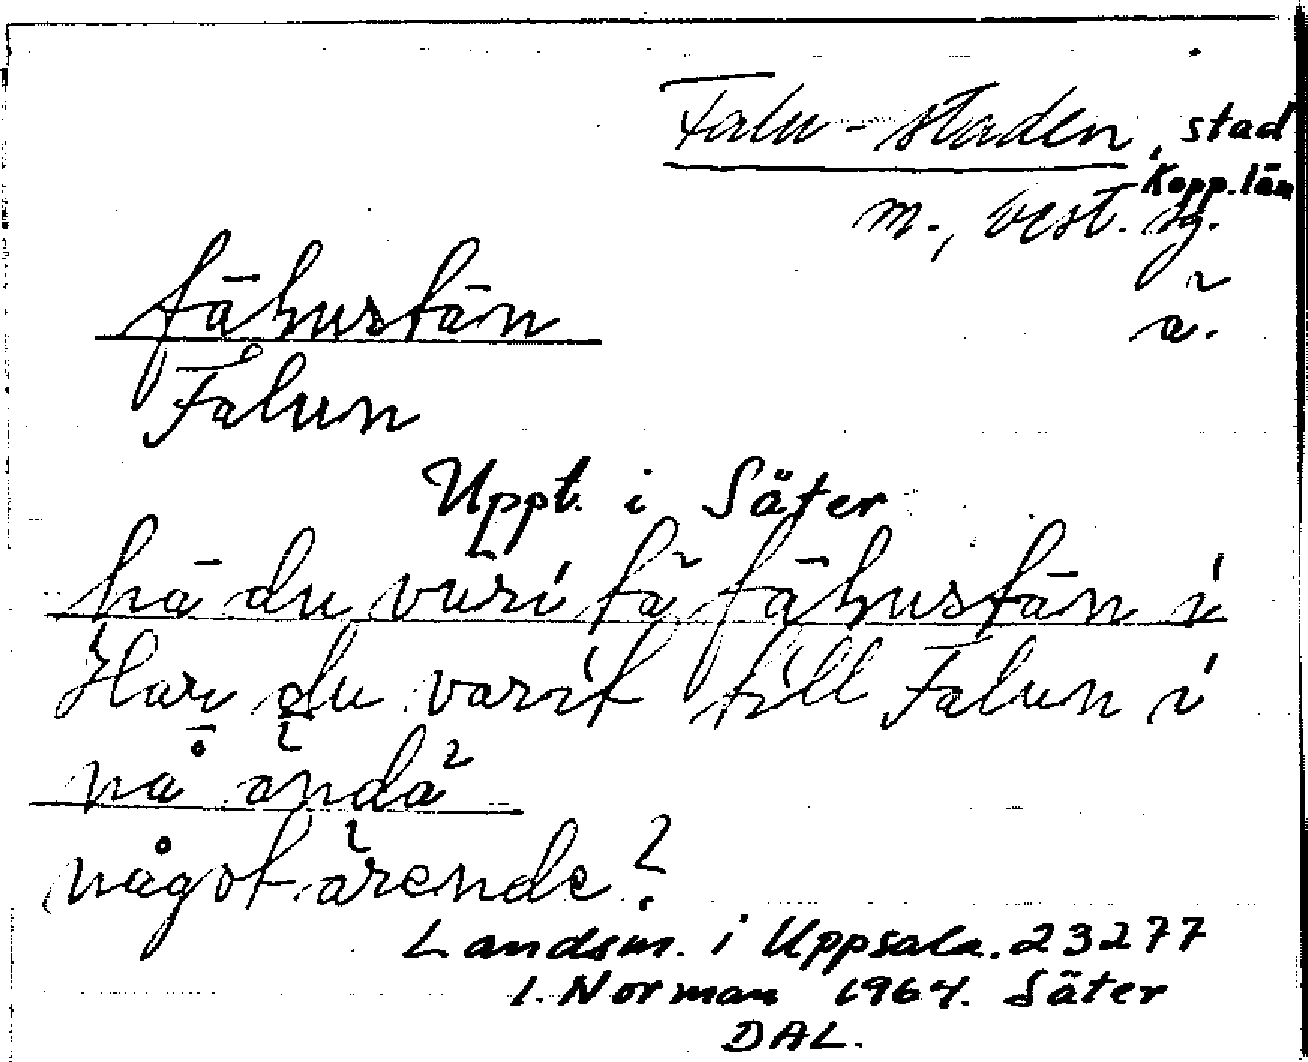 Falu-staden, stad
Kopp. län
m., best. sg.
ã.
fāhustān
Falun
Uppt. i Säter
hā du vūri tã fāhustān i
Har du varit till Falun i
nå̄ ãndã
något ärende?
Landsm. i Uppsala. 23277
I. Norman 1964. Säter
DAL.